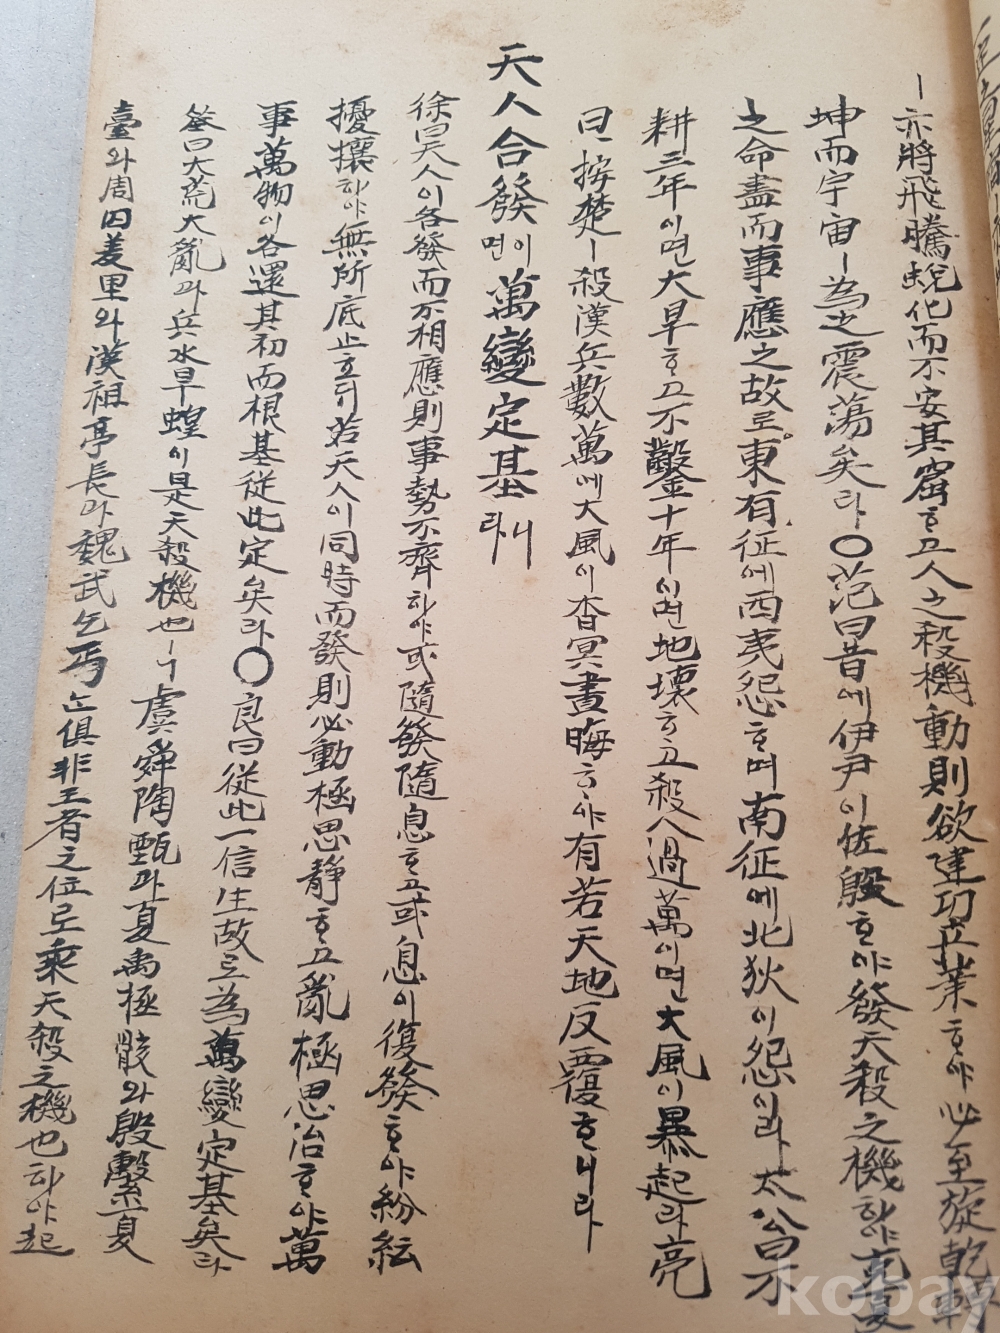 ㅣ亦將飛騰蛻化而不安其窟ᄒᆞ고人之殺機動則欲建功立業ᄒᆞ야必至旋乾轉
坤而宇宙ㅣ為之震蕩矣라○范曰昔에伊尹이佐殷ᄒᆞ야發天殺之機하야克夏
之命盡而事應之故로東有征에西夷怨ᄒᆞ며南征에北狄이怨이라太公曰不
耕三年이면大旱ᄒᆞ고不鑿十年이면地壞ᄒᆞ고殺人過萬이면大風이暴起라亮
曰按楚ㅣ殺漢兵數萬에大風이杳冥晝晦ᄒᆞ야有若天地反覆ᄒᆞ니라
天人合發이면萬變定基라니
徐曰天人이各發而不相應則事勢不齊하야或隨發隨息ᄒᆞ고或息이復發ᄒᆞ야紛紜
擾攘하야無所底止호되若天人이同時而發則必動極思靜ᄒᆞ고亂極思治ᄒᆞ야萬
事萬物이各還其初而根基從此定矣라○良曰從此一信生故로為萬變定基矣라
筌曰大荒大亂과兵水旱蝗이是天殺機也ㅣ니虞舜陶甄과夏禹極骸와殷繫夏
臺와周囚羑里와漢祖亭長과魏武乞丐는俱非王者之位로乘天殺之機也하야起
kobay